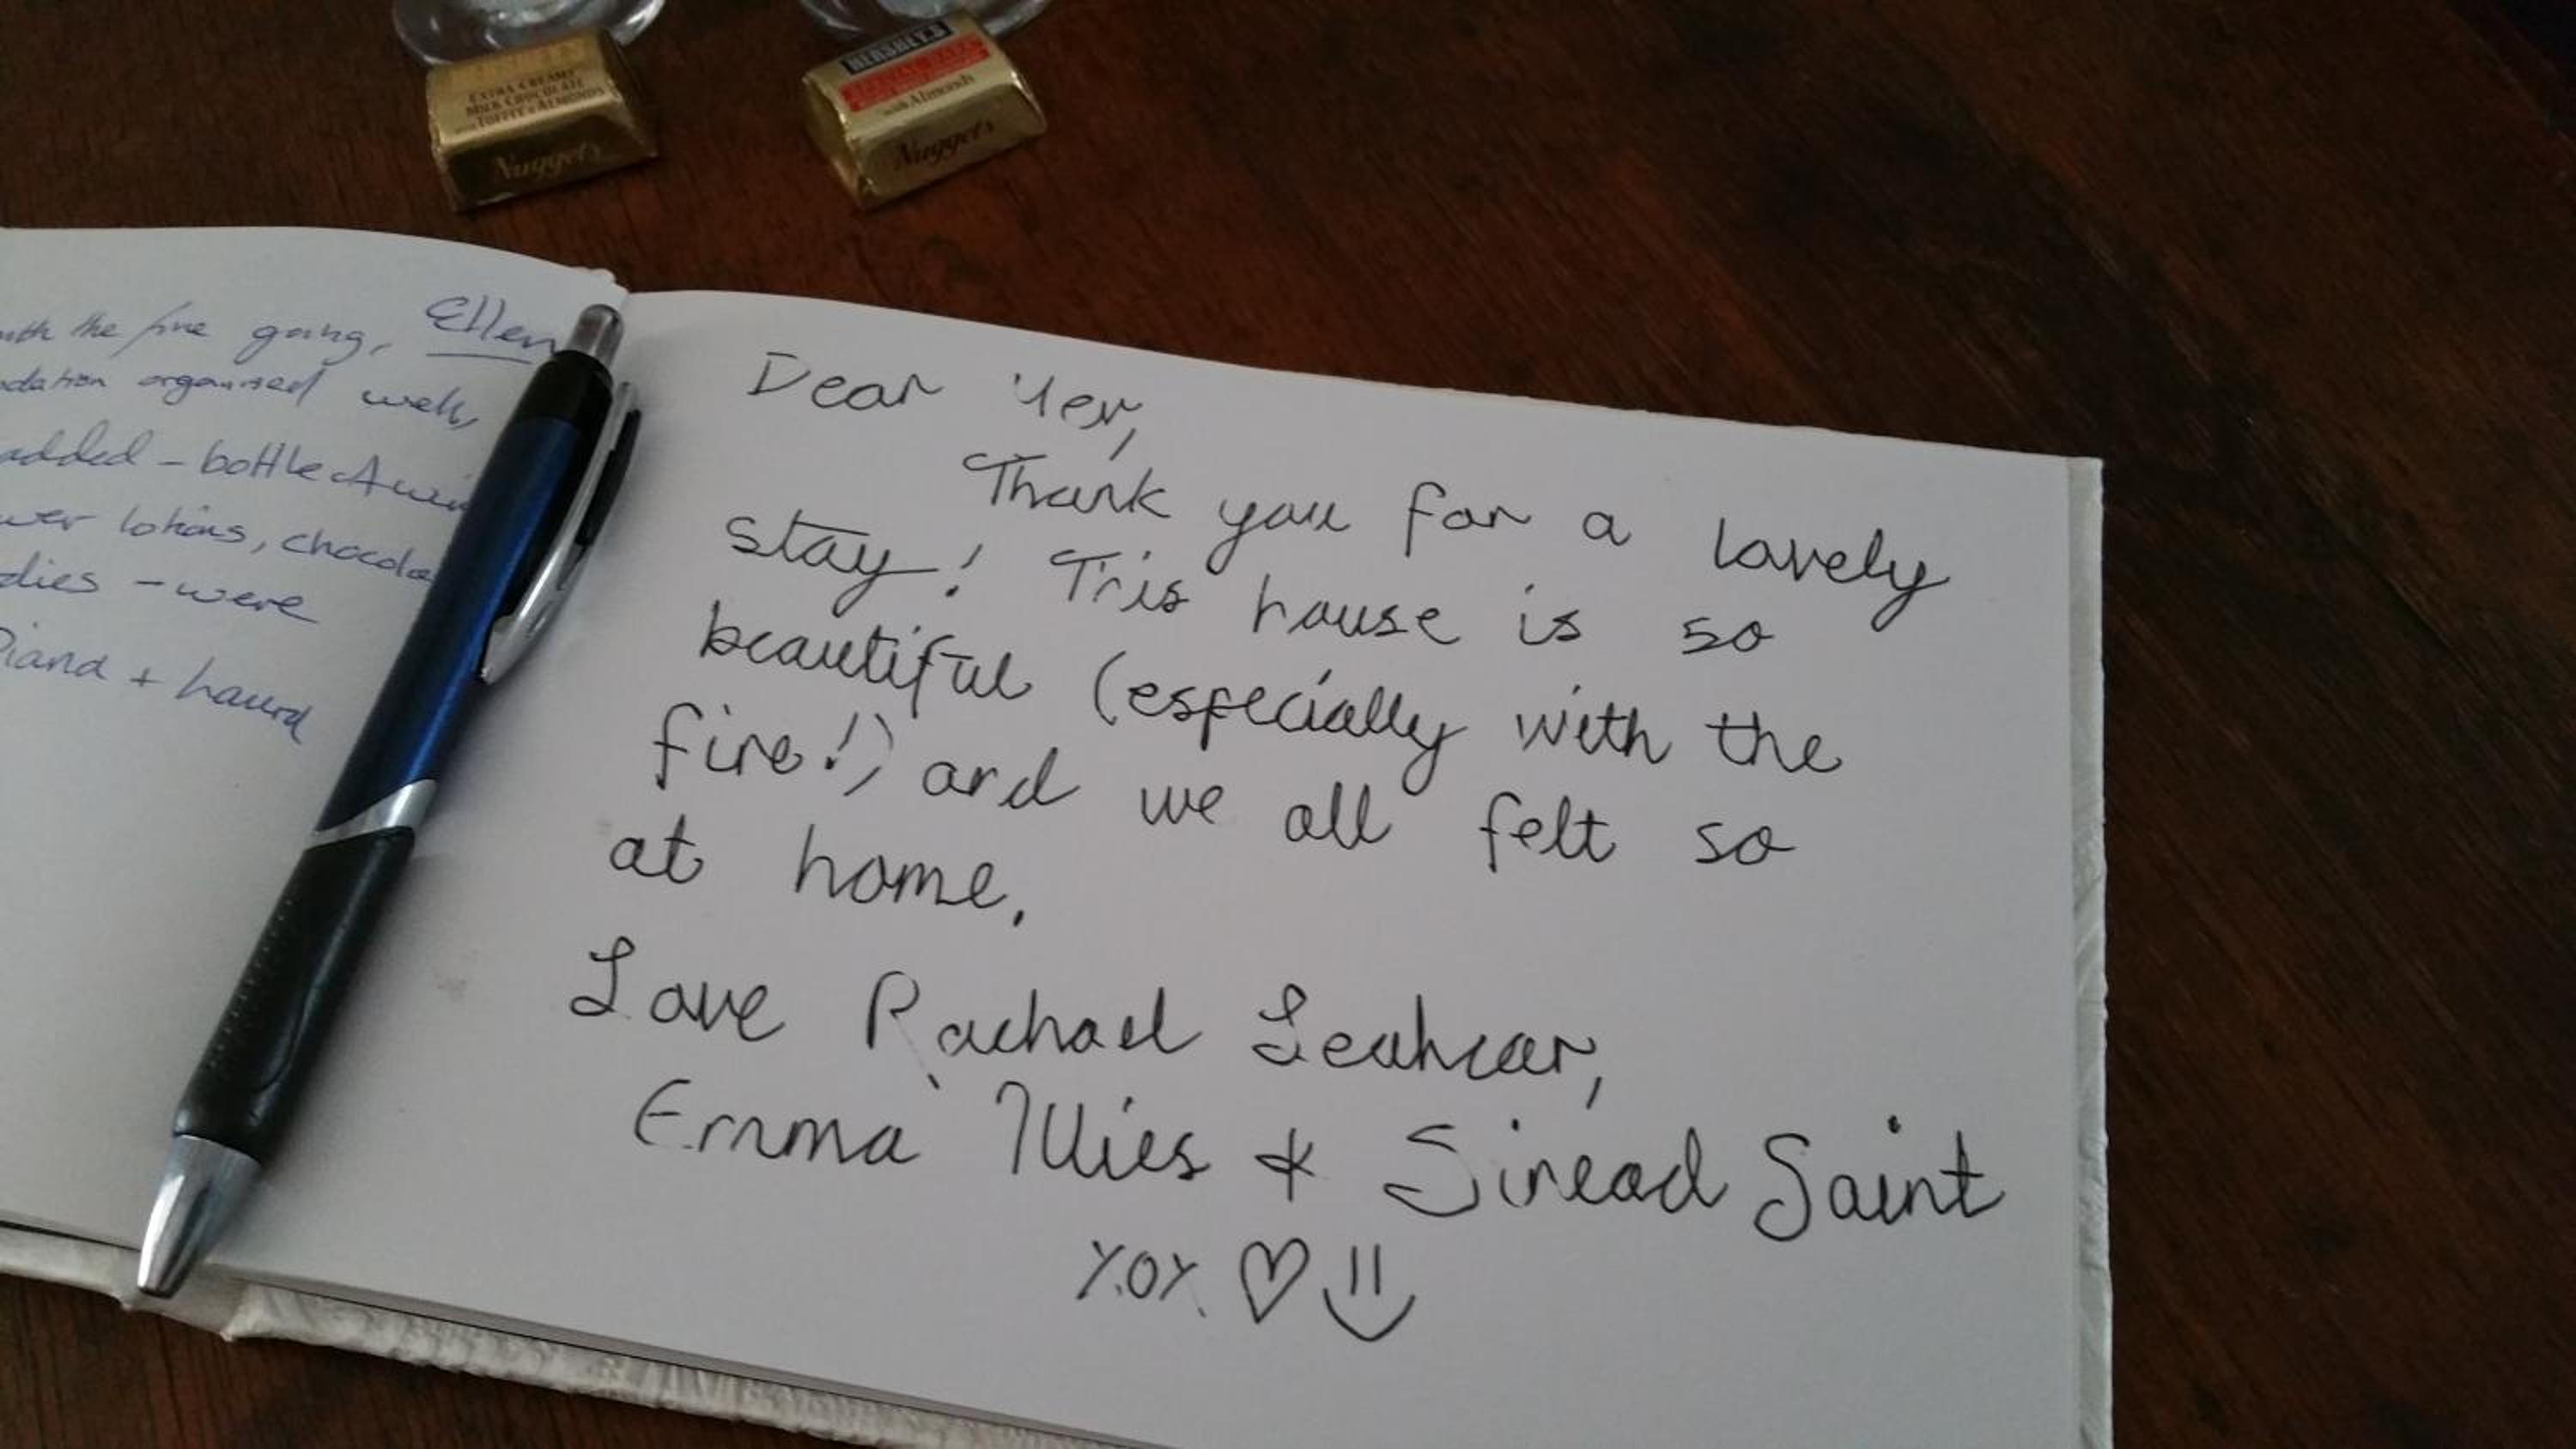 EXTRA CREAMY
MILK CHOCOLATE
with TOFFEE & ALMONDS
Nuggets
HERSHEY'S
with Almonds
Nuggets
the fire going, Ellen
organised well,
added - bottle
lotions,
- were
+
Dear Yer,
Thank you for a lovely
stay! This house is so
beautiful (especially with the
fire!) and we all felt so
at home.
Love Rachael Leahcar,
Emma Illies & Sinead Saint
XOX ♡ =)